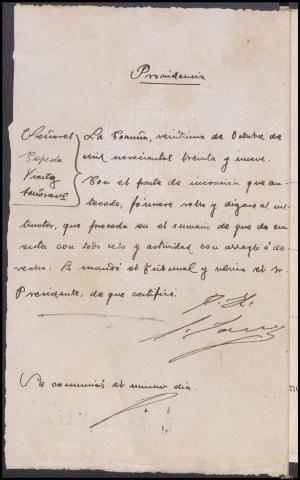 Providencia
Señores
Cepeda
Vieitez
La Coruña, veintiuno de Octubre de
mil novecientos treinta y nueve.
Con el parte de incoación que an-
tecede, fórmese rollo y dígase al ins-
tructor, que proceda en el sumario de que da cu-
enta con todo celo y actividad con arreglo á de-
recho. Lo mandó el Tribunal y rubrica el Sr.
Presidente, de que certifico.
Se comunicó el mismo día.